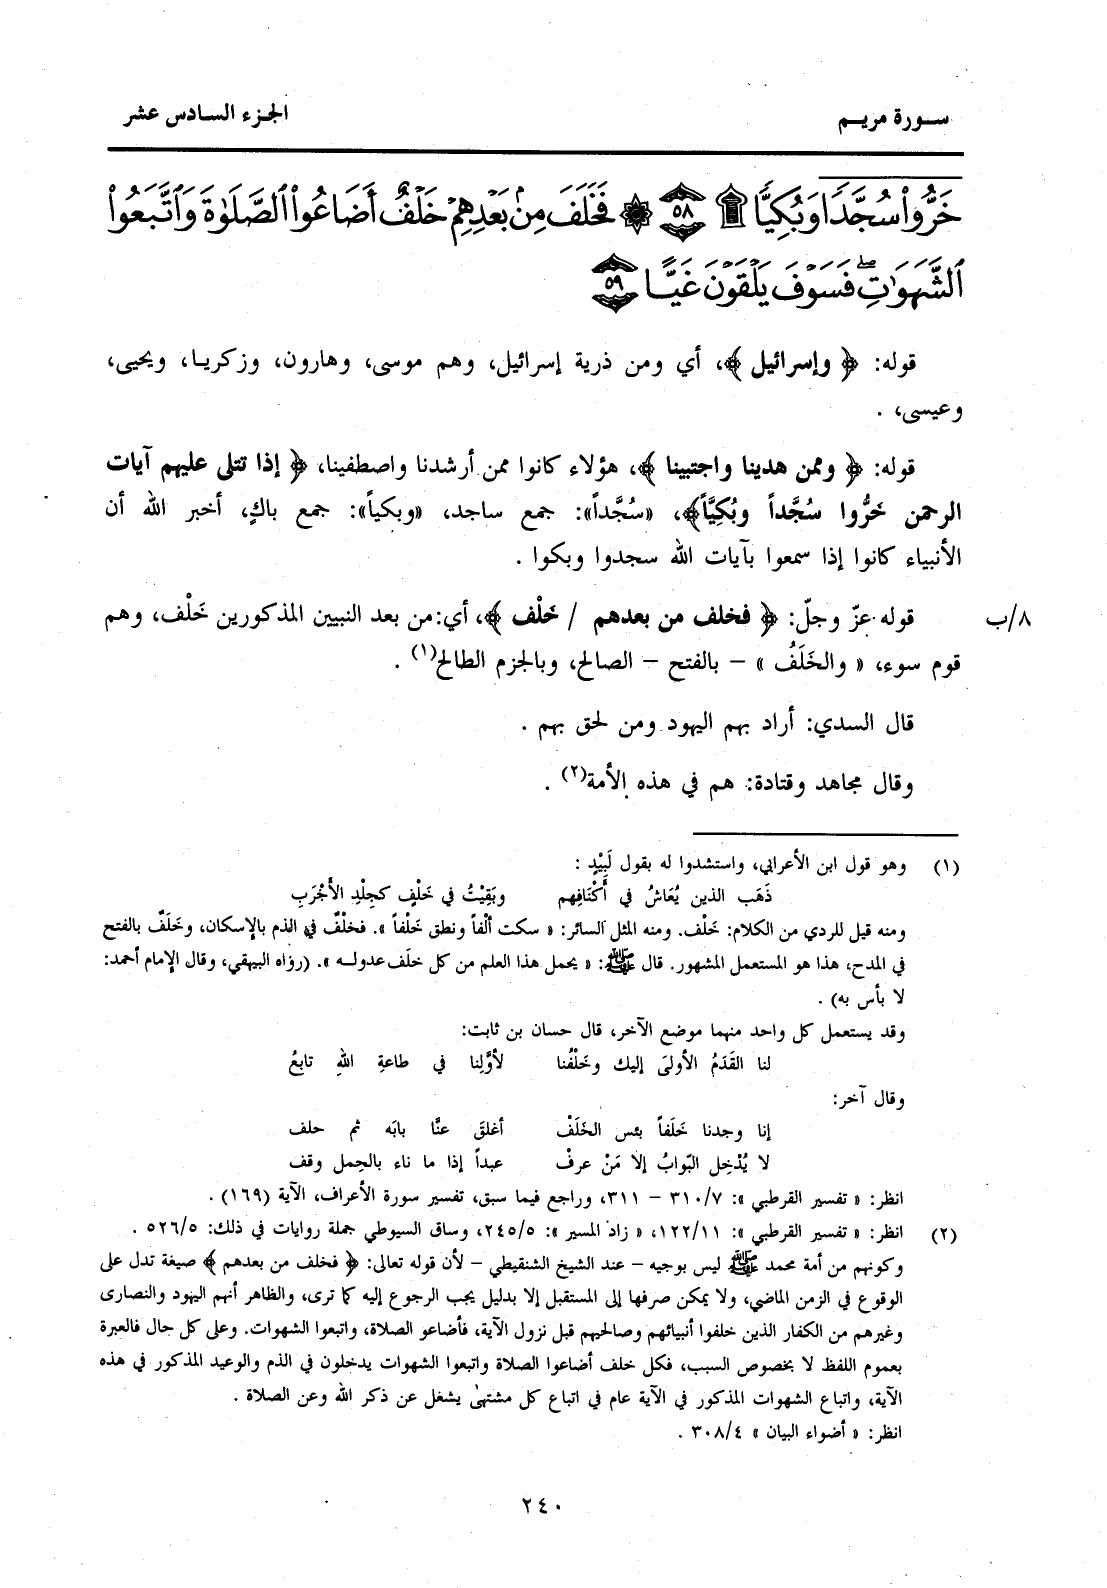 سورة مريم
الجزء السادس عشر
خَرُّوا۟ سُجَّدًا وَبُكِيًّا ۩ ٥٨ ۞ فَخَلَفَ مِنۢ بَعْدِهِمْ خَلْفٌ أَضَاعُوا۟ ٱلصَّلَوٰةَ وَٱتَّبَعُوا۟
ٱلشَّهَوَٰتِ ۖ فَسَوْفَ يَلْقَوْنَ غَيًّا ٥٩
قوله: ﴿ وإسرائيل ﴾، أي ومن ذرية إسرائيل، وهم موسى، وهارون، وزكريا، ويحيى،
وعيسى، .
قوله: ﴿ وممن هدينا واجتبينا ﴾، هؤلاء كانوا ممن أرشدنا واصطفينا، ﴿ إذا تتلى عليهم آيات
الرحمن خَرُّوا سُجَّداً وبُكِيَّاً﴾، «سُجَّداً»: جمع ساجد، «وبكياً»: جمع باكٍ، أخبر الله أن
الأنبياء كانوا إذا سمعوا بآيات الله سجدوا وبكوا .
٨/ب قوله عزّ وجلّ: ﴿ فخلف من بعدهم / خَلْف ﴾، أي: من بعد النبيين المذكورين خَلْف، وهم
قوم سوء، « والخَلَفُ » – بالفتح – الصالح، وبالجزم الطالح(١) .
قال السدي: أراد بهم اليهود ومن لحق بهم .
وقال مجاهد وقتادة: هم في هذه الأمة(٢) .
(١) وهو قول ابن الأعرابي، واستشدوا له بقول لَبِيْدٍ :
ذَهَب الذين يُعَاشُ في أَكْنَافِهم وبَقِيْتُ في خَلْفٍ كجِلْدِ الأَجْرَبِ
ومنه قيل للردي من الكلام: خَلْف. ومنه المثل السائر: « سكت ألْفاً ونطق خَلْفاً ». فخلْفٌ في الذم بالإسكان، وخَلَفٌ بالفتح
في المدح، هذا هو المستعمل المشهور. قال ﷺ: « يحمل هذا العلم من كل خلَف عدولـه ». (رؤاه البيهقي، وقال الإمام أحمد:
لا بأس به) .
وقد يستعمل كل واحد منهما موضع الآخر، قال حسان بن ثابت:
لنا القَدَمُ الأولىَ إليك وخَلْفُنا لأوَّلِنا في طاعةِ اللهِ تابعُ
وقال آخر:
إنا وجدنا خَلَفاً بئس الخَلَفْ أغلقَ عنَّا بابَه ثم حلف
لا يُدْخِل البّوابُ إلا مَنْ عرفْ عبداً إذا ما ناء بالحِمل وقف
انظر: « تفسير القرطبي »: ٣١٠/٧ – ٣١١، وراجع فيما سبق، تفسير سورة الأعراف، الآية (١٦٩) .
(٢) انظر: « تفسير القرطبي »: ١٢٢/١١، « زاد المسير »: ٢٤٥/٥، وساق السيوطي جملة روايات في ذلك: ٥٢٦/٥ .
وكونهم من أمة محمد ﷺ ليس بوجيه – عند الشيخ الشنقيطي – لأن قوله تعالى: ﴿ فخلف من بعدهم ﴾ صيغة تدل على
الوقوع في الزمن الماضي، ولا يمكن صرفها إلى المستقبل إلا بدليل يجب الرجوع إليه كما ترى، والظاهر أنهم اليهود والنصارى
وغيرهم من الكفار الذين خلفوا أنبيائهم وصالحيهم قبل نزول الآية، فأضاعو الصلاة، واتبعوا الشهوات. وعلى كل حال فالعبرة
بعموم اللفظ لا بخصوص السبب، فكل خلف أضاعوا الصلاة واتبعوا الشهوات يدخلون في الذم والوعيد المذكور في هذه
الآية، واتباع الشهوات المذكور في الآية عام في اتباع كل مشتهىً يشغل عن ذكر الله وعن الصلاة .
انظر: « أضواء البيان » ٣٠٨/٤ .
٢٤٠